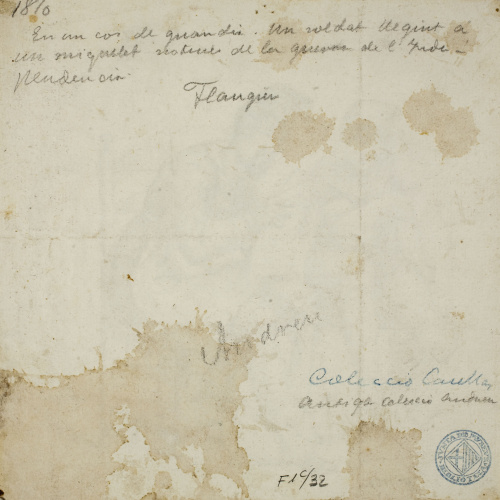 1810
En un cos de guardia. Un soldat llegint a
un miquelet noticies de la guerra de l'Inde-
pendencia.
Flaugier
Andreu
Colecció Casellas
Antiga colecció Andreu
F1C/32